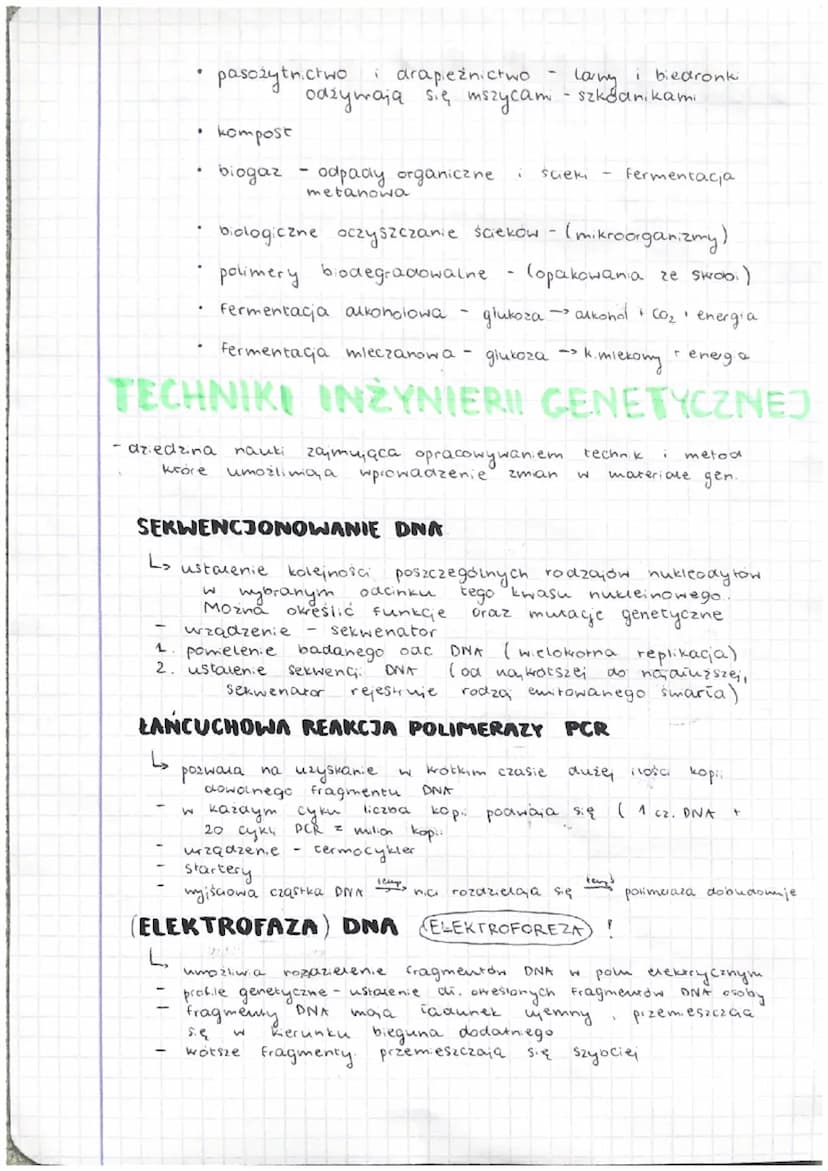 • pasożytnictwo i drapieżnictwo - larwy i biedronki
odżywiają się mszycami - szkodnikami
• kompost
• biogaz - odpady organiczne i ścieki - fermentacja
metanowa
• biologiczne oczyszczanie ścieków - (mikroorganizmy)
• polimery biodegradowalne - (opakowania ze skrobi)
• fermentacja alkoholowa - glukoza → alkohol + CO₂ + energia
• fermentacja mleczanowa - glukoza → k. mlekowy + energia
TECHNIKI INŻYNIERII GENETYCZNEJ
- dziedzina nauki zajmująca opracowywaniem technik i metod
które umożliwiają wprowadzenie zmian w materiale gen.
SEKWENCJONOWANIE DNA
↳ ustalenie kolejności poszczególnych rodzajów nukleodytów
w wybranym odcinku tego kwasu nukleinowego.
Można określić funkcje oraz mutacje genetyczne
- urządzenie - sekwenator
1. powielenie badanego odc DNA (wielokrotna replikacja)
2. ustalenie sekwencji DNA (od najkrótszej do najdłuższej,
sekwenator rejestruje rodzaj emitowanego światła)
ŁAŃCUCHOWA REAKCJA POLIMERAZY PCR
↳ pozwala na uzyskanie w krótkim czasie dużej ilości kopii
dowolnego fragmentu DNA
- w każdym cyklu liczba kopii podwaja się (1 cz. DNA +
20 cykli PCR = milion kopii
- urządzenie - termocykler
- startery
- wyjściowa cząstka DNA temp→ nici rozdzielają się temp↓→ polimeraza dobudowuje
(ELEKTROFAZA) DNA (ELEKTROFOREZA) !
↳ umożliwia rozdzielenie fragmentów DNA w polu elektrycznym
- profile genetyczne - ustalenie dł. określonych fragmentów DNA osoby
- fragmenty DNA mają ładunek ujemny, przemieszczają
się w kierunku bieguna dodatniego
- krótsze fragmenty przemieszczają się szybciej